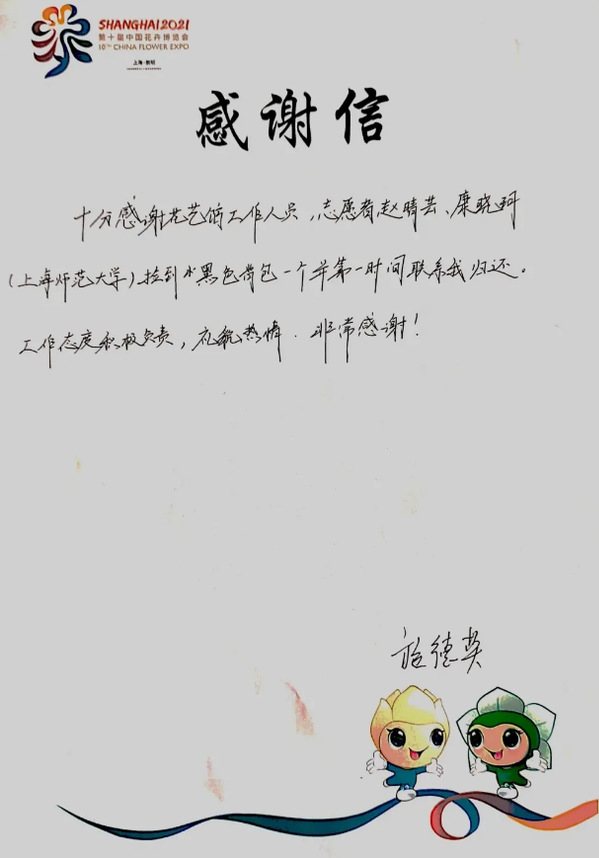 SHANGHAI2021
第十届中国花卉博览会
10TH CHINA FLOWER EXPO
上海·崇明
感谢信
十分感谢花艺馆工作人员,志愿者赵晴芸、康晓珂
(上海师范大学)捡到小黑色背包一个并第一时间联系我归还。
工作态度积极负责,礼貌热情.非常感谢!
德英